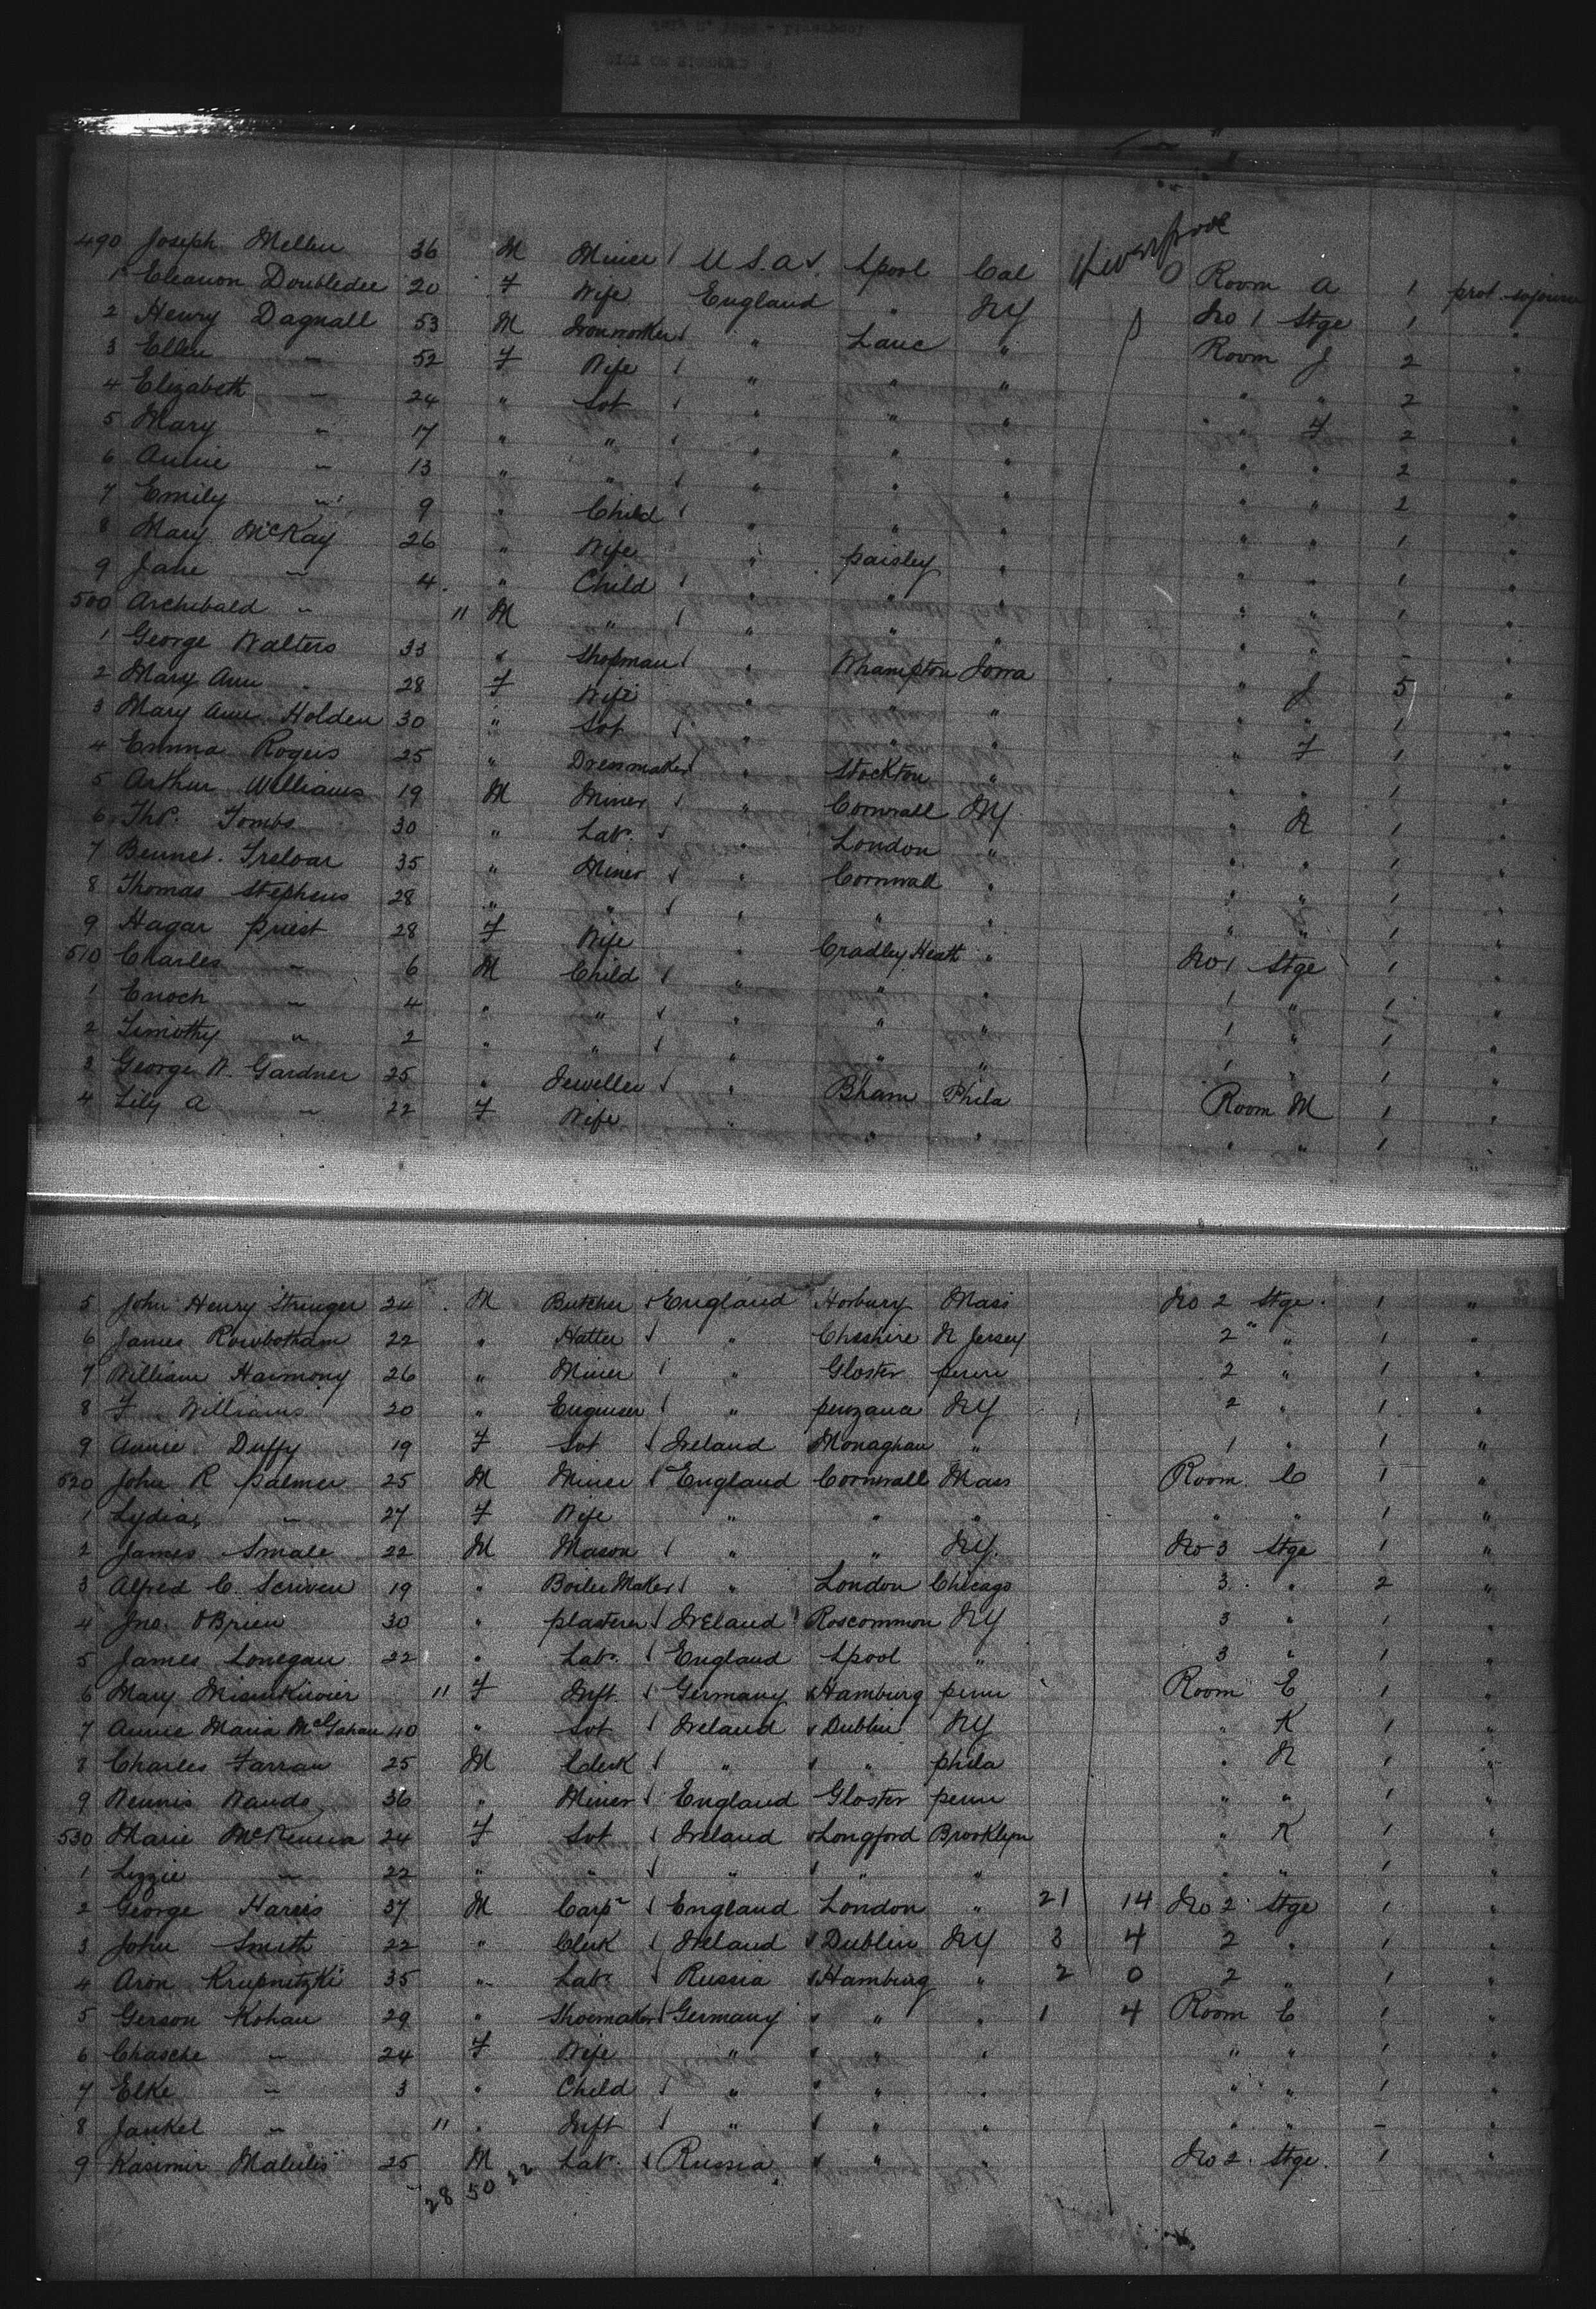 490 Joseph Mellen 36 M Miner U.S.A. Lpool Cal Liverpool Room A 1 prot. sojourn
1 Eleanon Doubledee 20 F Wife England " NY No 1 Stge 1 "
2 Henry Dagnall 53 M Ironworker " Lanc " Room J 2 "
3 Ellen " 52 F Wife " " " " " 2 "
4 Elizabeth " 24 " Svt " " " " F 2 "
5 Mary " 17 " " " " " " " 2 "
6 Annie " 13 " " " " " " " 2 "
7 Emily " 9 " Child " " " " " 1 "
8 Mary McKay 26 " Wife " Paisley " " " 1 "
9 Jane " 4 " Child " " " " " 1 "
500 Archibald " 11 M " " " " " " - "
1 George Walters 33 " Shopman " Whampton Iowa " J 5 "
2 Mary Ann " 28 F Wife " " " " " 1 "
3 Mary Ann Holden 30 " Svt " " " " F 1 "
4 Emma Rogers 25 " Dressmaker " Stockton " " " 1 "
5 Arthur Williams 19 M Miner " Cornwall NY " N 1 "
6 Thos. Tombs 30 " Labr. " London " " " 1 "
7 Bennet. Treloar 35 " Miner " Cornwall " " " 1 "
8 Thomas Stephens 28 " " " " " " " 1 "
9 Hagar Priest 28 F Wife " Cradley Heath " No 1 Stge 1 "
510 Charles " 6 M Child " " " 1 " 1 "
1 Enoch " 4 " " " " " 1 " 1 "
2 Timothy " 2 " " " " " 1 " 1 "
3 George W. Gardner 25 " Jeweller " Bham Phila Room M 1 "
4 Lily A " 22 F Wife " " " " " 1 "
5 John Henry Stringer 24 M Butcher England Horbury Mass No 2 Stge. 1 "
6 James Rowbotham 22 " Hatter " Cheshire N Jersey 2 " 1 "
7 William Harmony 26 " Miner " Gloster penn 2 " 1 "
8 F Williams 20 " Engineer " penzana NY 2 " 1 "
9 Annie Duffy 19 F Svt Ireland Monaghan " 1 " 1 "
520 John R Palmer 25 M Miner England Cornwall Mass Room C 1 "
1 Lydia " 27 F Wife " " " " " 1 "
2 James Smale 22 M Mason " " NY. No 3 Stge 1 "
3 Alfred C. Scriven 19 " Boiler Maker " London Chicago 3 " 2 "
4 Jno. OBrien 30 " plasterer Ireland Roscommon NY 3 " 1 "
5 James Lonegan 22 " Labr. England Lpool " 3 " 1 "
6 Mary 11 F Inft Germany Hamburg penn Room E 1 "
7 Annie Maria McGahan 40 " Svt Ireland Dublin NY " K 1 "
8 Charles Farran 25 M Clerk " " phila " N 1 "
9 Dennis Wands 36 " Miner England Gloster penn " " 1 "
530 Marie McKenna 24 F Svt Ireland Longford Brooklyn " K 1 "
1 Lizzie " 22 " " " " " " " 1 "
2 George Harris 37 M Carpr England London " 21 14 No 2 Stge 1 "
3 John Smith 22 " Clerk Ireland Dublin NY 3 4 2 " 1 "
4 Aron Krupnitzki 35 " Labr. Russia Hamburg " 2 0 2 " 1 "
5 Gerson Kohan 29 " Shoemaker Germany " " 1 4 Room C 1 "
6 Chasche " 24 F Wife " " " " " 1 "
7 Elke " 3 " Child " " " " " 1 "
8 Jankel " 11 " Inft " " " " " - "
9 Kasimir Malulis 25 M Labr. Russia " " No 2 Stge. 1 "
28 50 22